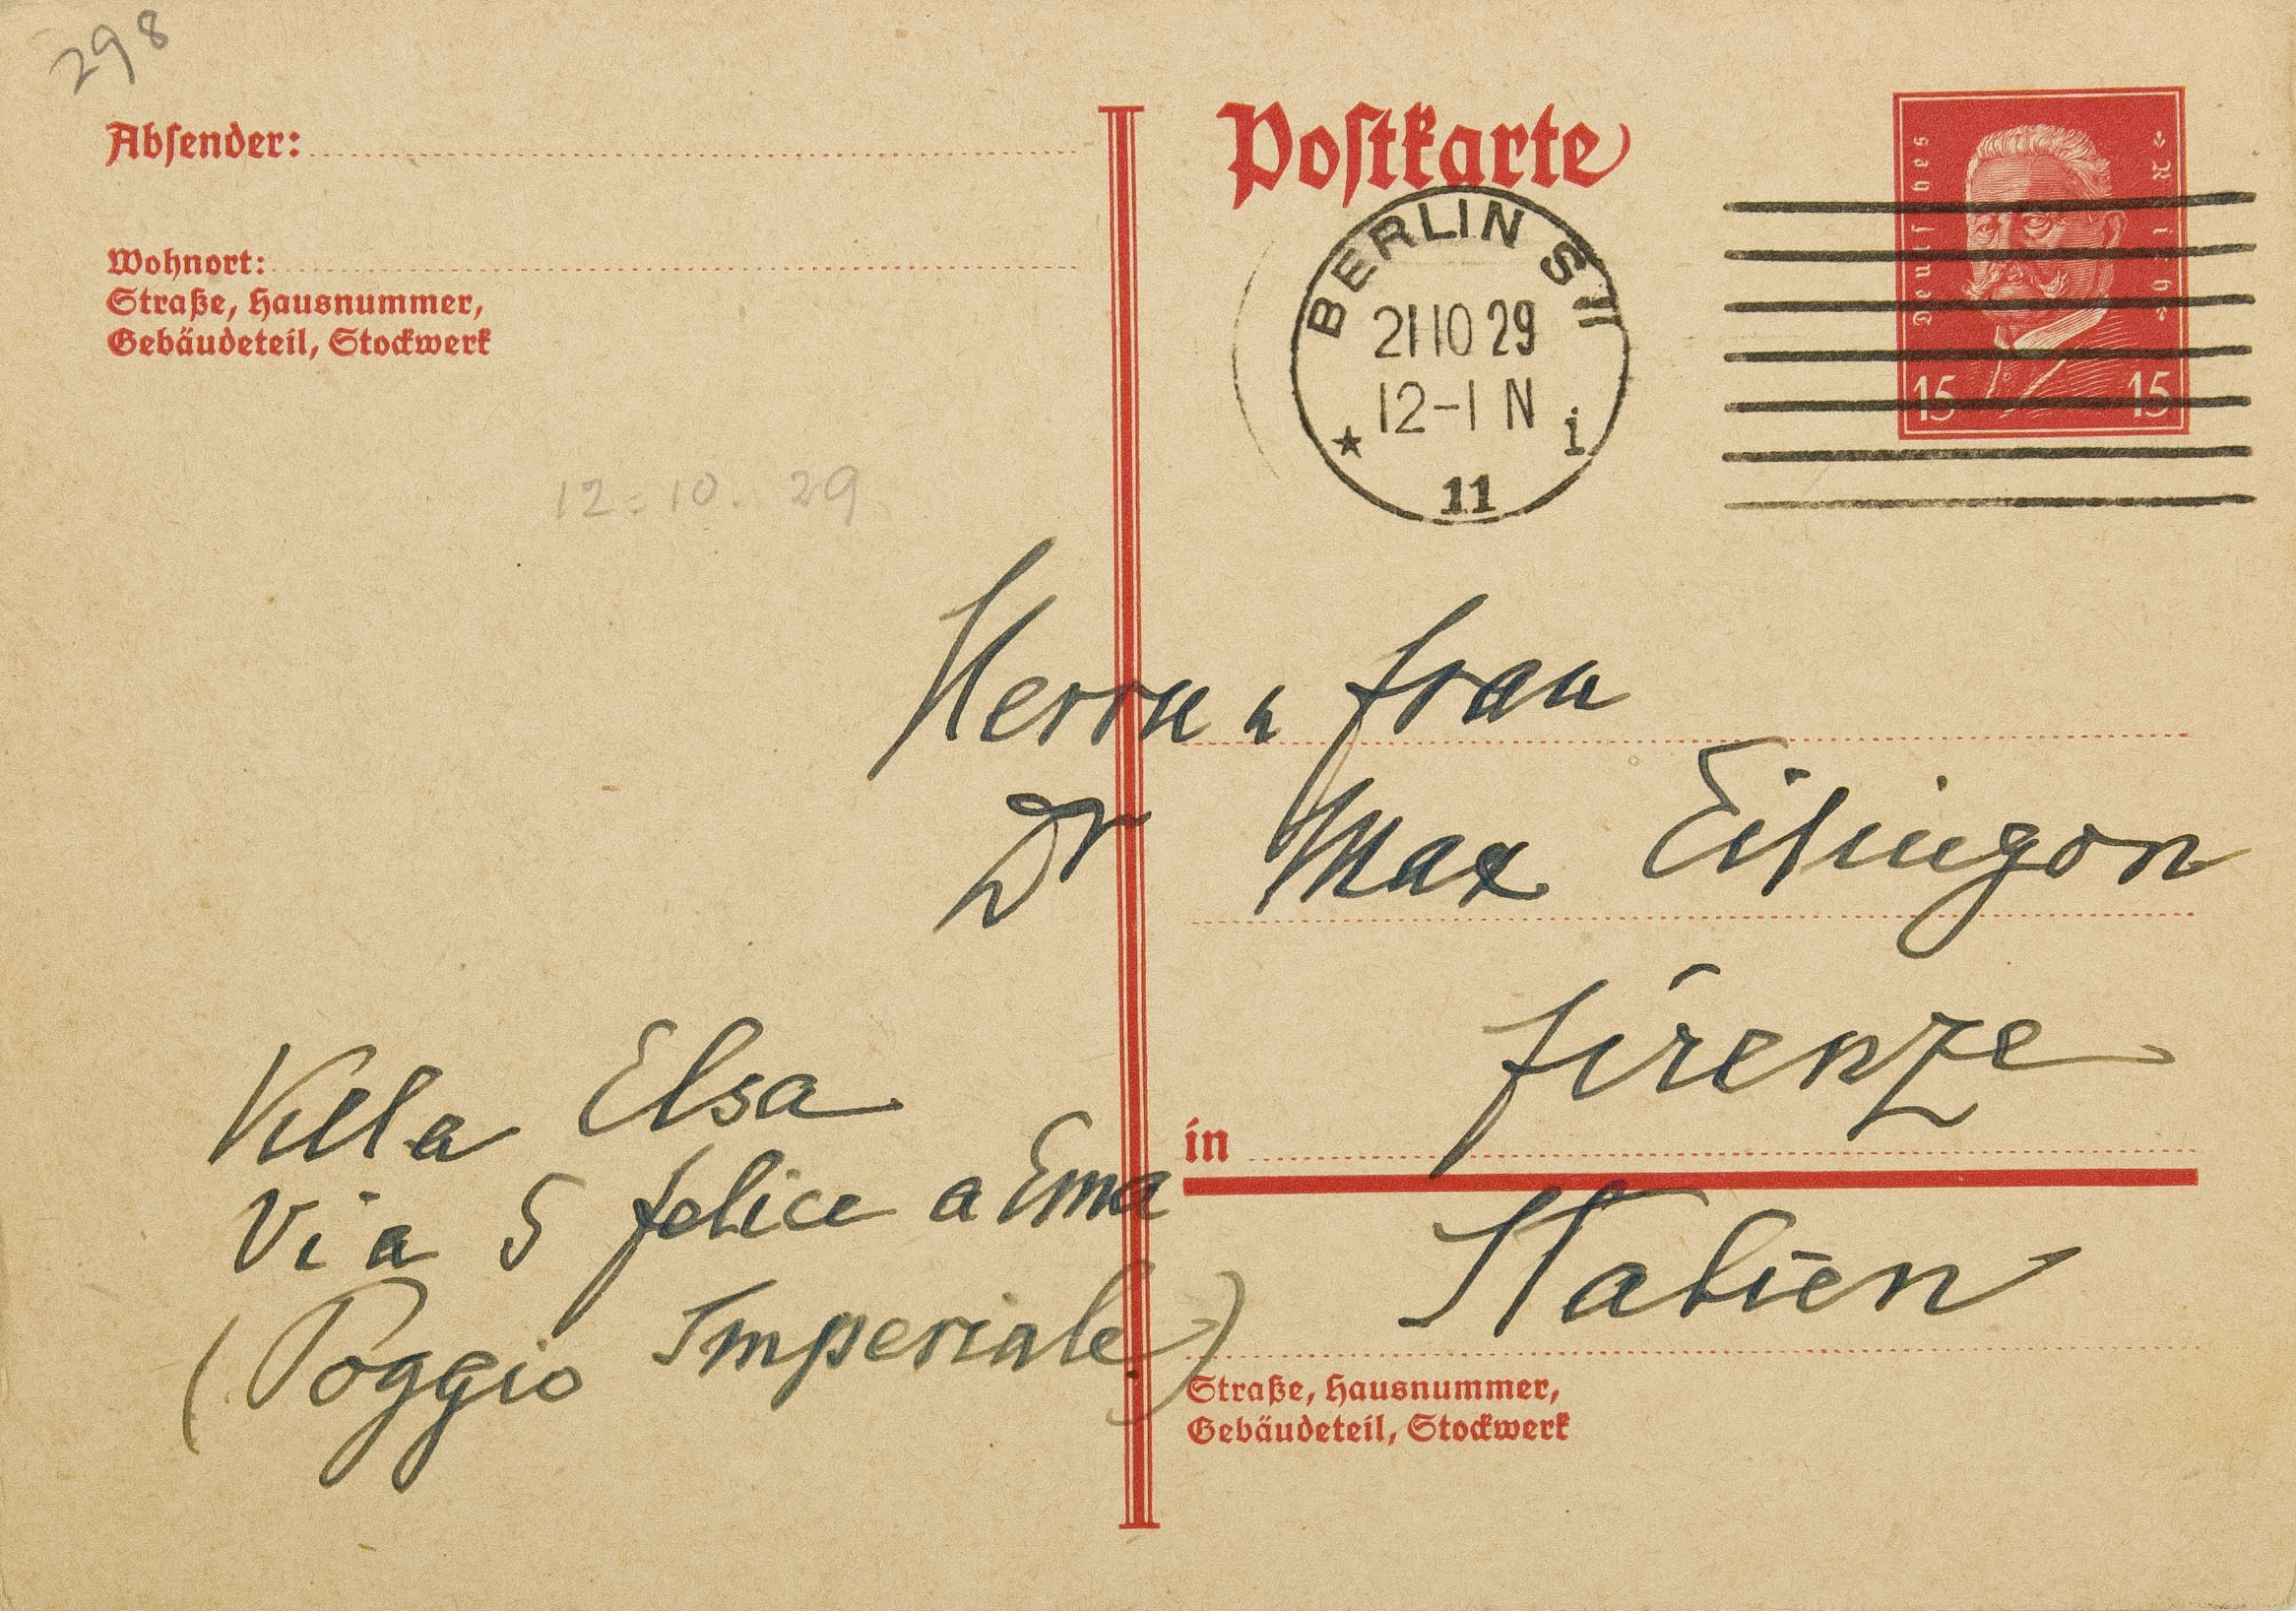 298
Absender:
Wohnort:
Straße, Hausnummer,
Gebäudeteil, Stockwerk
12.10.29
Postkarte
Deutsches Reich
15 15
BERLIN S 11
21 10 29
12-1 N
i
11
Herrn u Frau
Dr Max Eitingon
Firenze
in
Italien
Straße, Hausnummer,
Gebäudeteil, Stockwerk
Villa Elsa
Via S Felice a Ema
(Poggio Imperiale)